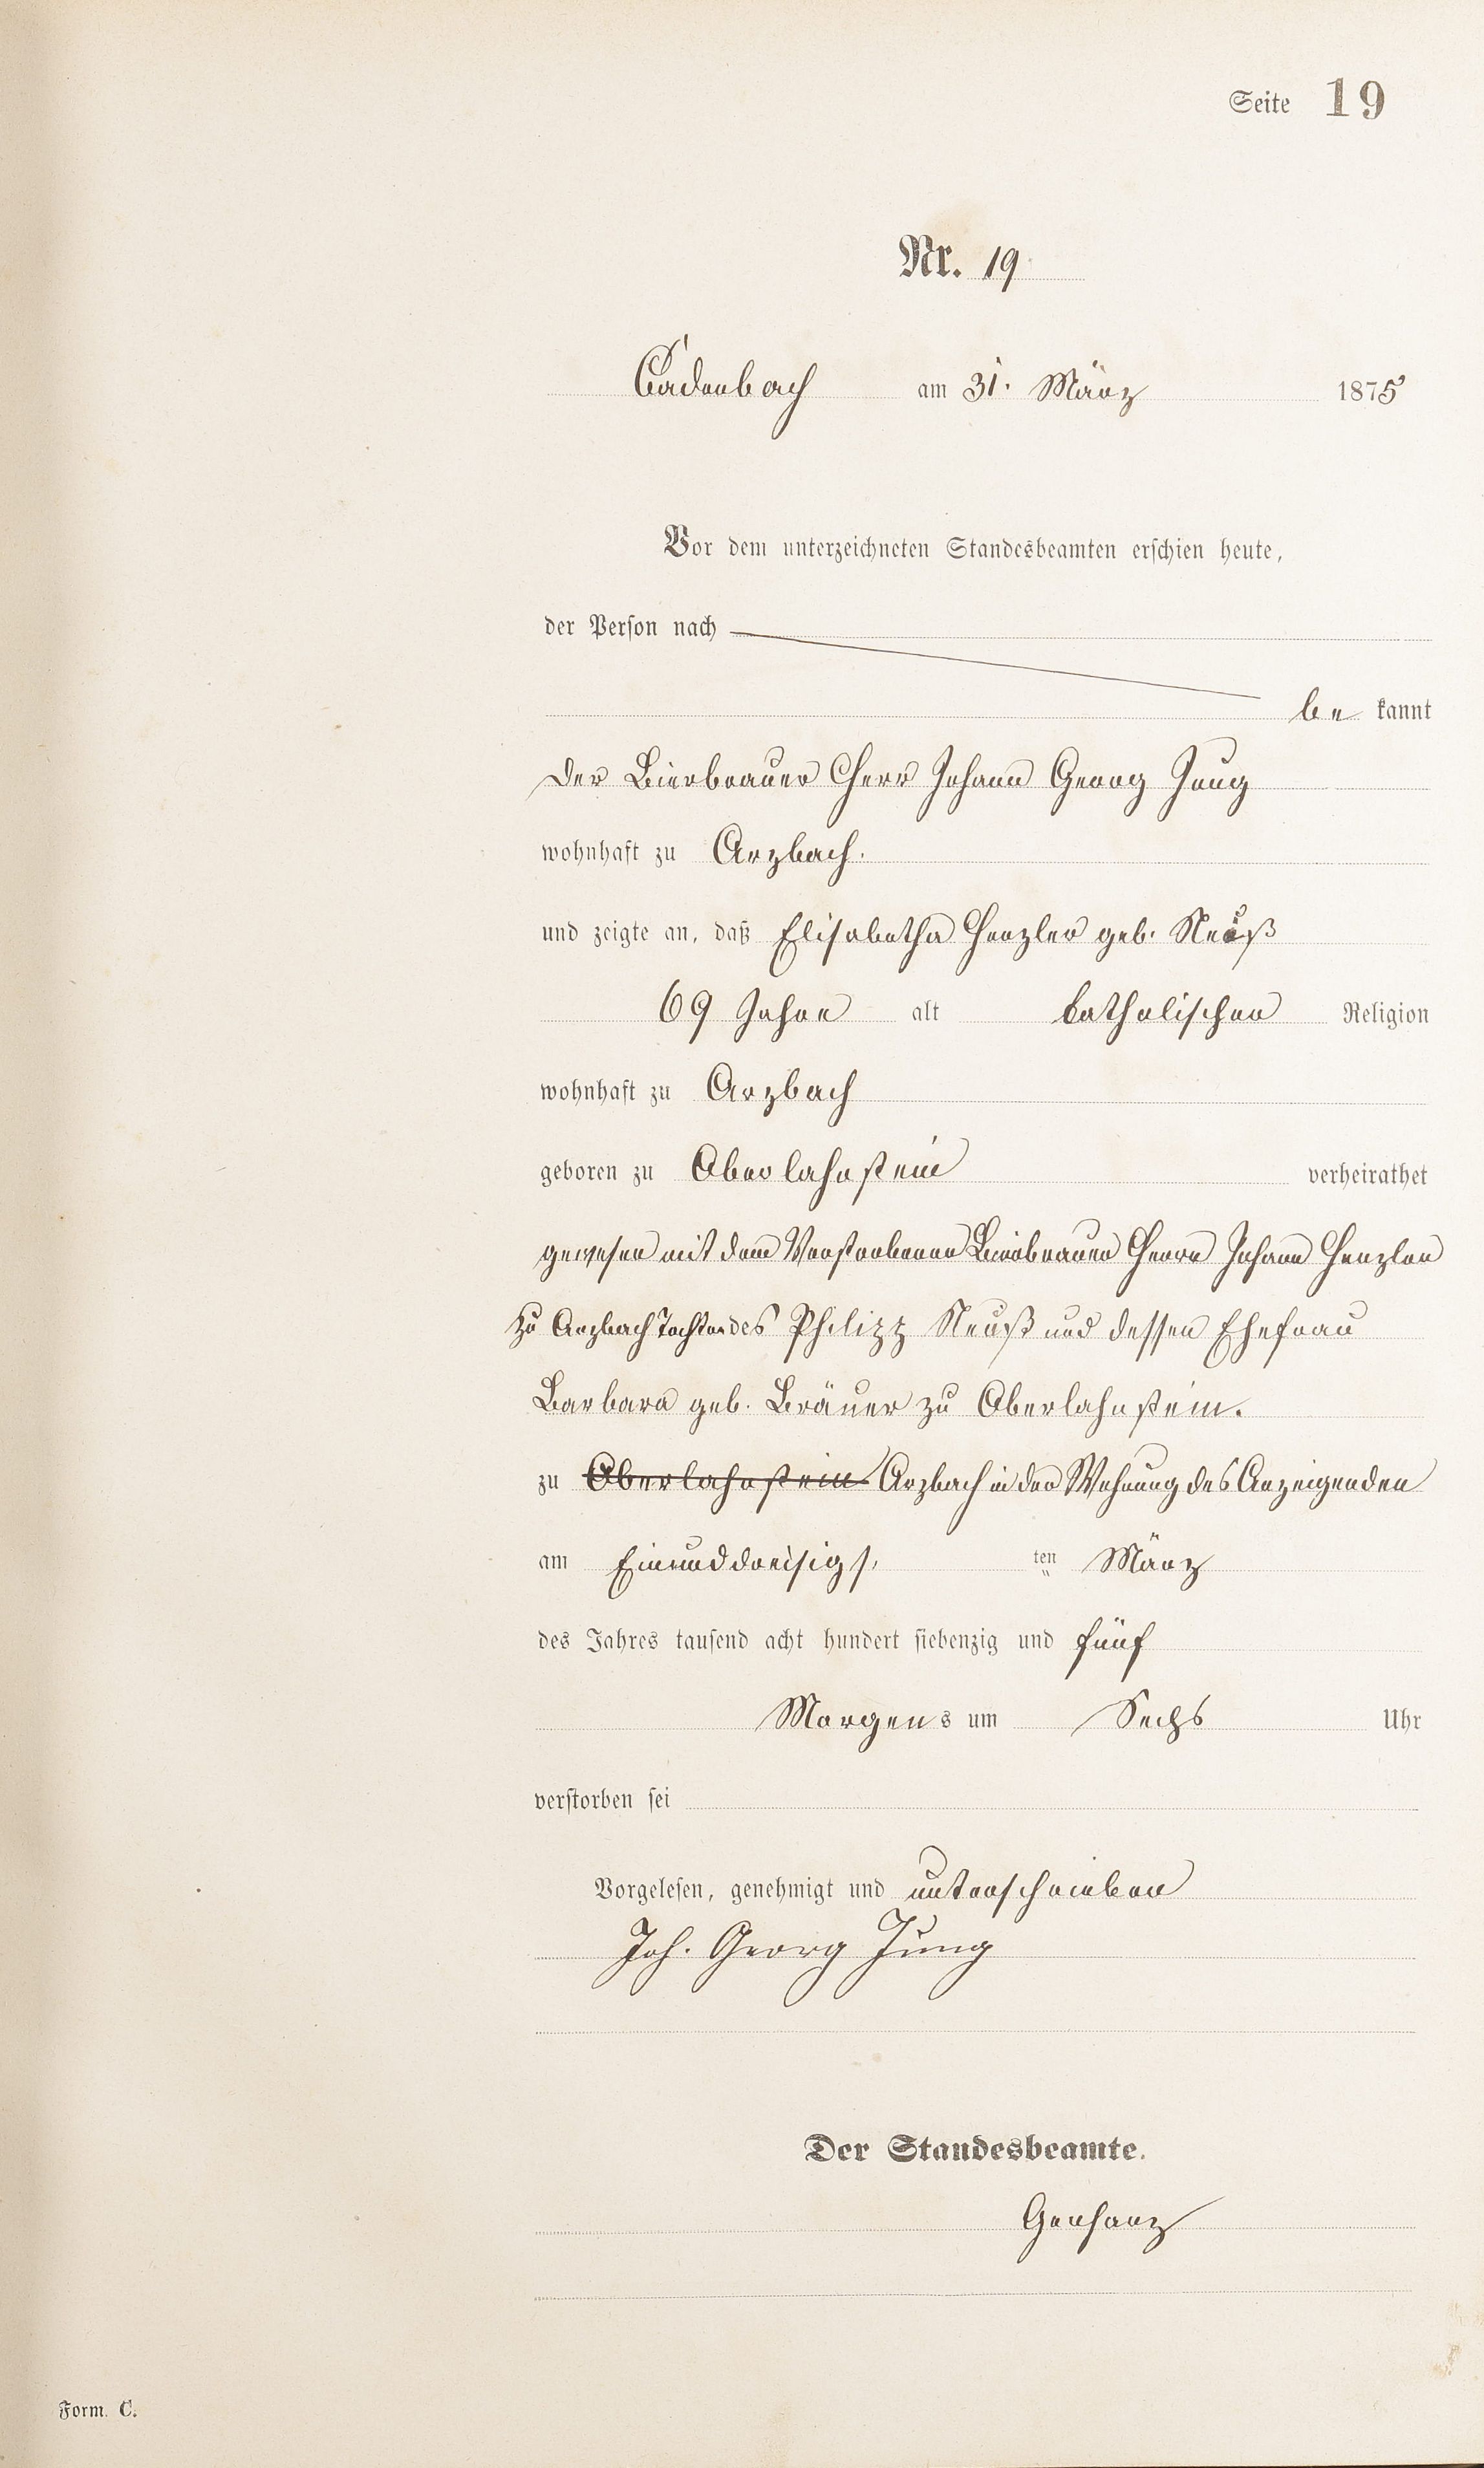 Seite 19
Nr. 19
Cadenbach am 31. März 1875
Vor dem unterzeichneten Standesbeamten erschien heute,
der Person nach
be kannt
der Bierbrauer Herr Johann Georg Jung
wohnhaft zu Arzbach.
und zeigte an, daß Elisabetha Henzler geb. Neuß
69 Jahre alt katholischen Religion
wohnhaft zu Arzbach
geboren zu Oberlahnstein verheirathet
gewesen mit dem Verstorbenen Bierbrauer Herrn Johann Henzler
zu Arzbach Tochter des Philipp Neuß und dessen Ehefrau
Barbara geb. Bräuer zu Oberlahnstein.
zu Oberlahnstein Arzbach in der Wohnung des Anzeigenden
am Einunddreisigs ten März
des Jahres tausend acht hundert siebenzig und fünf
Morgens um Sechs Uhr
verstorben sei
Vorgelesen, genehmigt und unterschrieben
Joh. Georg Jung
Der Standesbeamte.
Gerharz
Form. C.